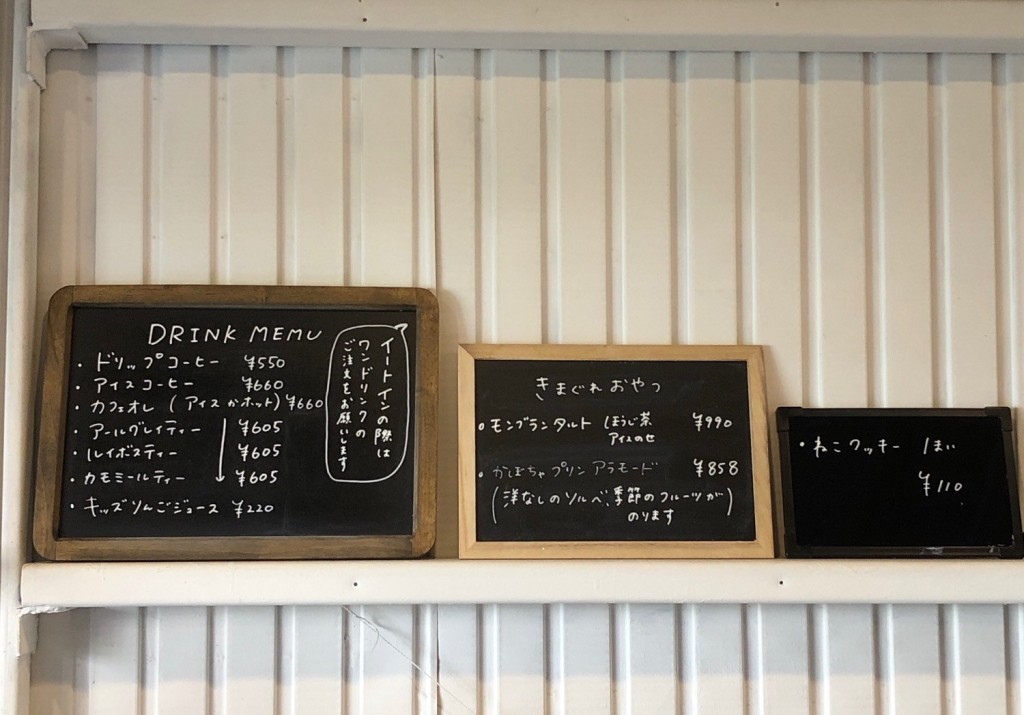 DRINK MEMU
・ドリップコーヒー ¥550
・アイスコーヒー ¥660
・カフェオレ (アイスかホット) ¥660
・アールグレイティー ¥605
・ルイボスティー ¥605
・カモミールティー ¥605
・キッズりんごジュース ¥220
イートインの際は
ワンドリンクの
ご注文をお願いします
きまぐれおやつ
・モンブランタルト ほうじ茶 ¥990
アイスのせ
・かぼちゃプリンアラモード ¥858
(洋なしのソルベ、季節のフルーツが
のります)
・ねこクッキー 1まい
¥110